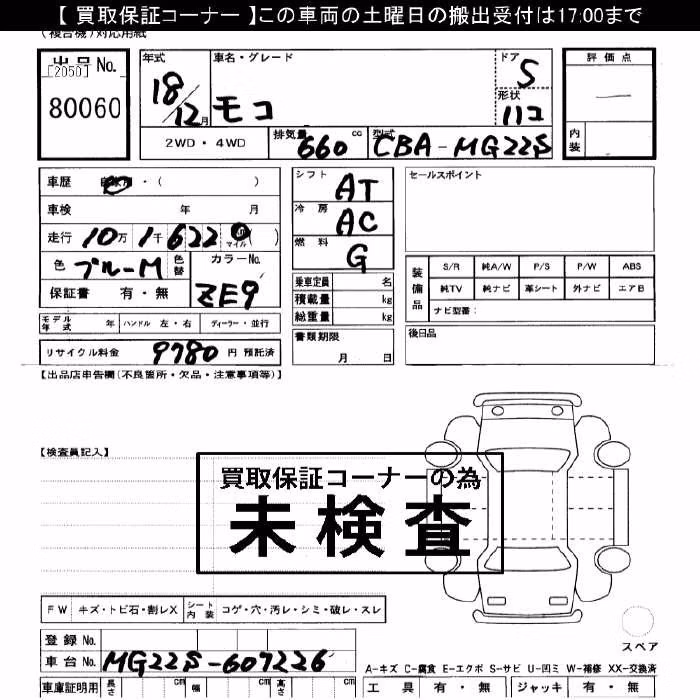 【 買取保証コーナー 】この車両の土曜日の搬出受付は17:00まで
(複合機)対応用紙
出品No.
[2050]
80060
年式
18/12月
車名・グレード
モコ
ドア
5
形状
ハコ
評価点
―
内装
2WD・4WD
排気量 660 cc
型式 CBA-MG22S
車歴 自家用・( )
車検 年 月
走行 10万1千622 Km マイル ( )
色 ブルーM 色替
カラーNo.
ZE9
保証書 有・無
シフト AT
冷房 AC
燃料 G
乗車定員 名
積載量 kg
総重量 kg
書類期限
月 日
セールスポイント
装備品
S/R 純A/W P/S P/W ABS
純TV 純ナビ 革シート 外ナビ エアB
ナビ型番:
後日品
モデル年式 年 ハンドル 左・右 ディーラー・並行
リサイクル料金 9780 円 預託済
【出品店申告欄(不良箇所・欠品・注意事項等)】
【検査員記入】
買取保証コーナーの為
未検査
FW キズ・トビ石・割レX シート内装 コゲ・穴・汚レ・シミ・破レ・スレ
スペア
登録No.
車台No. MG22S-607226
A-キズ C-腐食 E-エクボ S-サビ U-凹ミ W-補修 XX-交換済
車庫証明用 長さ cm 幅 cm 高さ cm
工具 有・無 ジャッキ 有・無